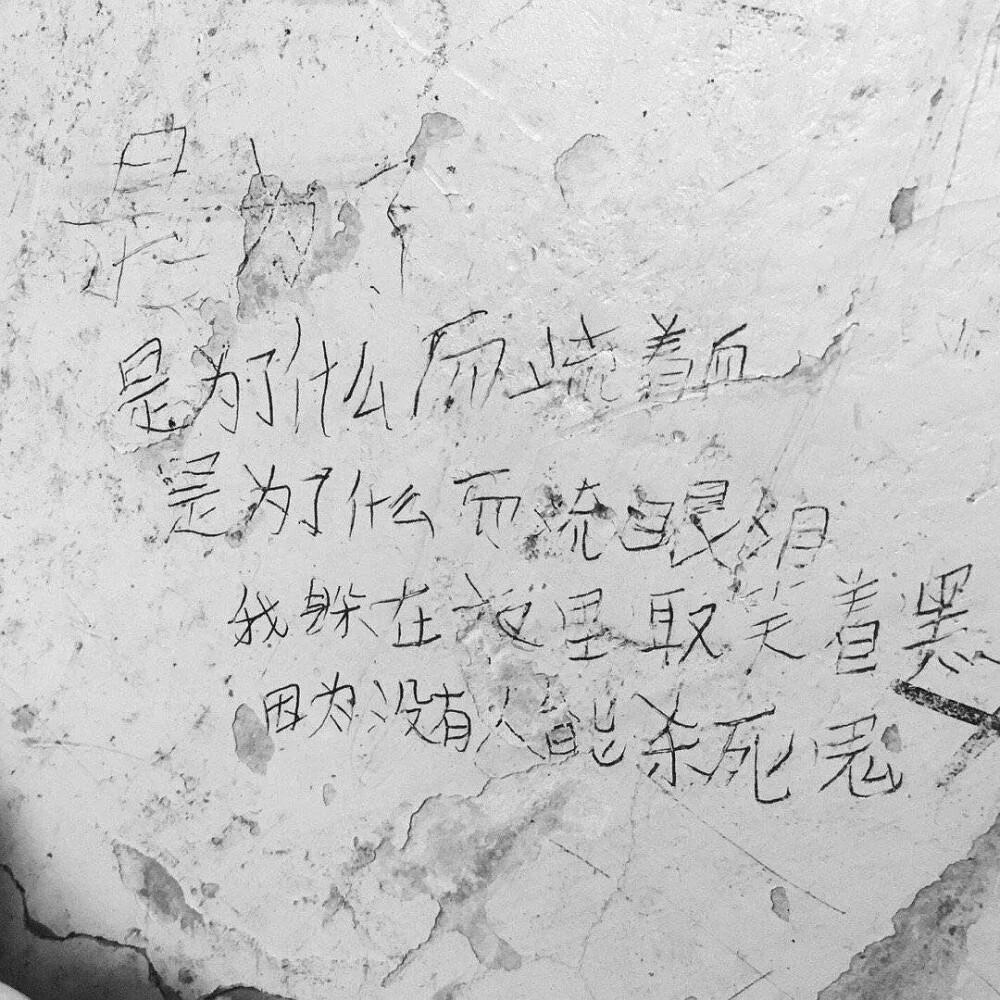 是为了
是为了什么而流着血
是为了什么而流眼泪
我躲在这里取笑着黑
因为没有人能杀死鬼